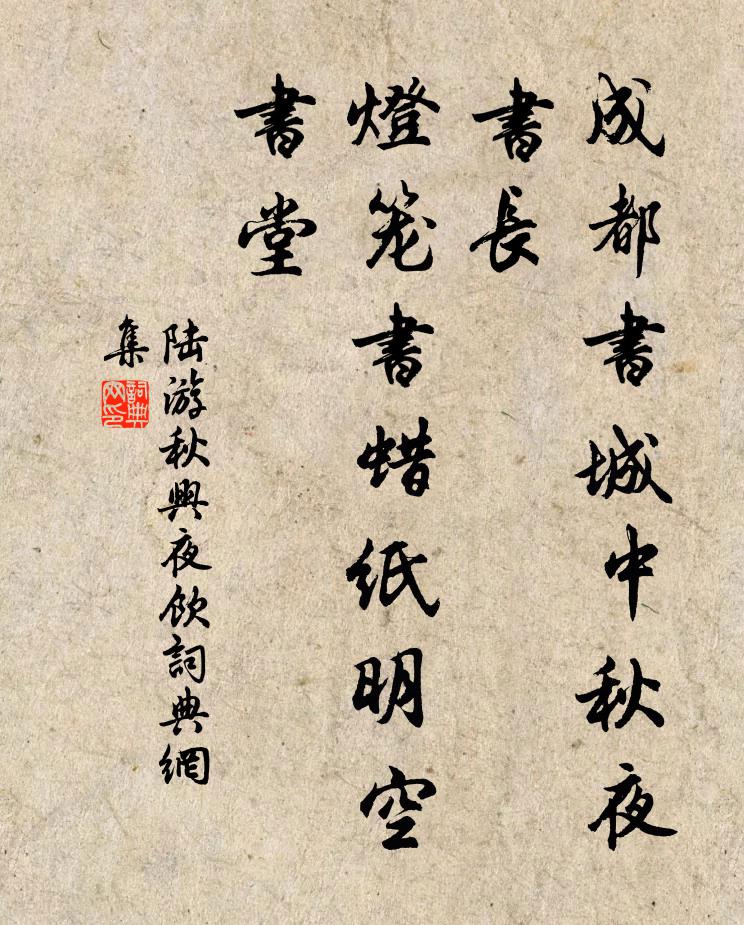 成都書城中秋夜
書長
燈笼書蜡紙明空
書堂
陆游秋興夜飲詞典網
集
詞典网印